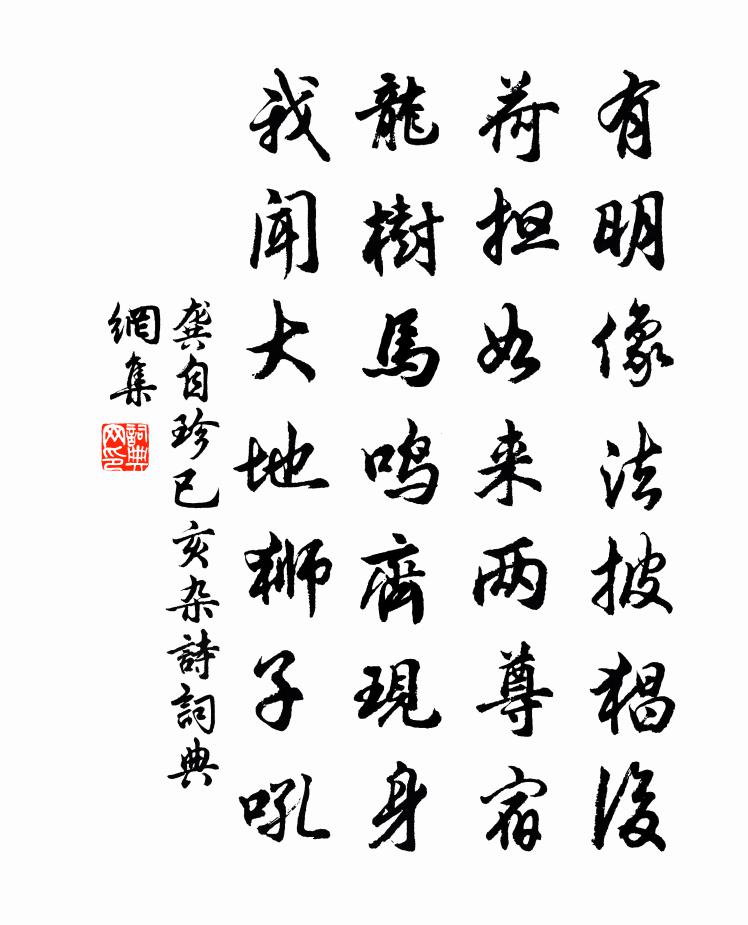 有明像法披猖後
荷担如来两尊宿
龍樹馬鳴齊現身
我聞大地獅子吼
龔自珍己亥杂詩詞典
網集
詞典
网印